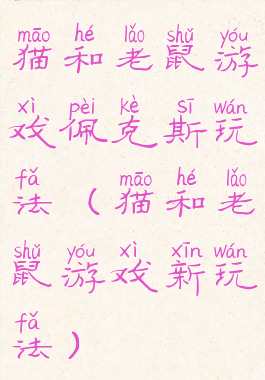 māo hé lǎo shǔ yóu
猫和老鼠游
xì pèi kè sī wán
戏佩克斯玩
fǎ māo hé lǎo
法（猫和老
shǔ yóu xì xīn wán
鼠游戏新玩
fǎ
法）